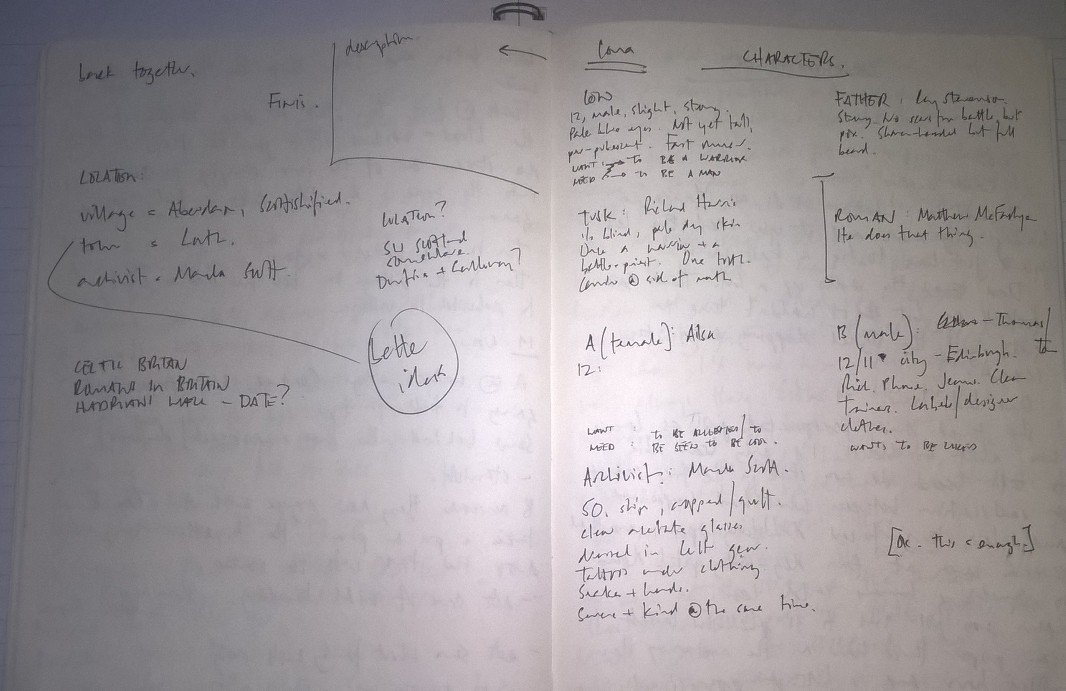 back together.
Finis.
description.
LOCATION:
village = Aberdam, Scottishified.
town =
archivist = Scott.
LOCATION?
SW SCOTLAND
somewhere
+ Galloway?
Better
idea
CELTIC BRITAIN
ROMANS IN BRITAIN
HADRIAN'S WALL – DATE?
CHARACTERS.
12, male, slight, strong.
Pale blue eyes. Not yet tall,
pre-pubescent. Fast runner.
WANT : TO BE A WARRIOR
NEED : TO BE A MAN
FATHER : Ray Stevenson
Strong. No scars from battle, but
beard.
TUSK : Richard Harris
blind, pale dry skin
Once a warrior + a
battle-priest. One tooth.
@ side of mouth
ROMAN : Matthew McFadyen
He does that thing.
A (female) : Ailsa
12 :
WANT : TO BE ACCEPTED / TO
NEED : BE SEEN TO BE COOL.
B (male) : – Thomas /
12/11 city – Edinburgh.
Rich. Phone. Jeans. Clean
Trainers. Labels / designer
clothes.
WANTS TO BE LIKED
Archivist : Scott.
50, slim, cropped /
clear acetate glasses
dressed in
Tattoos under clothing
+ hands.
Severe + kind @ the same time.
[Ok – this is enough.]